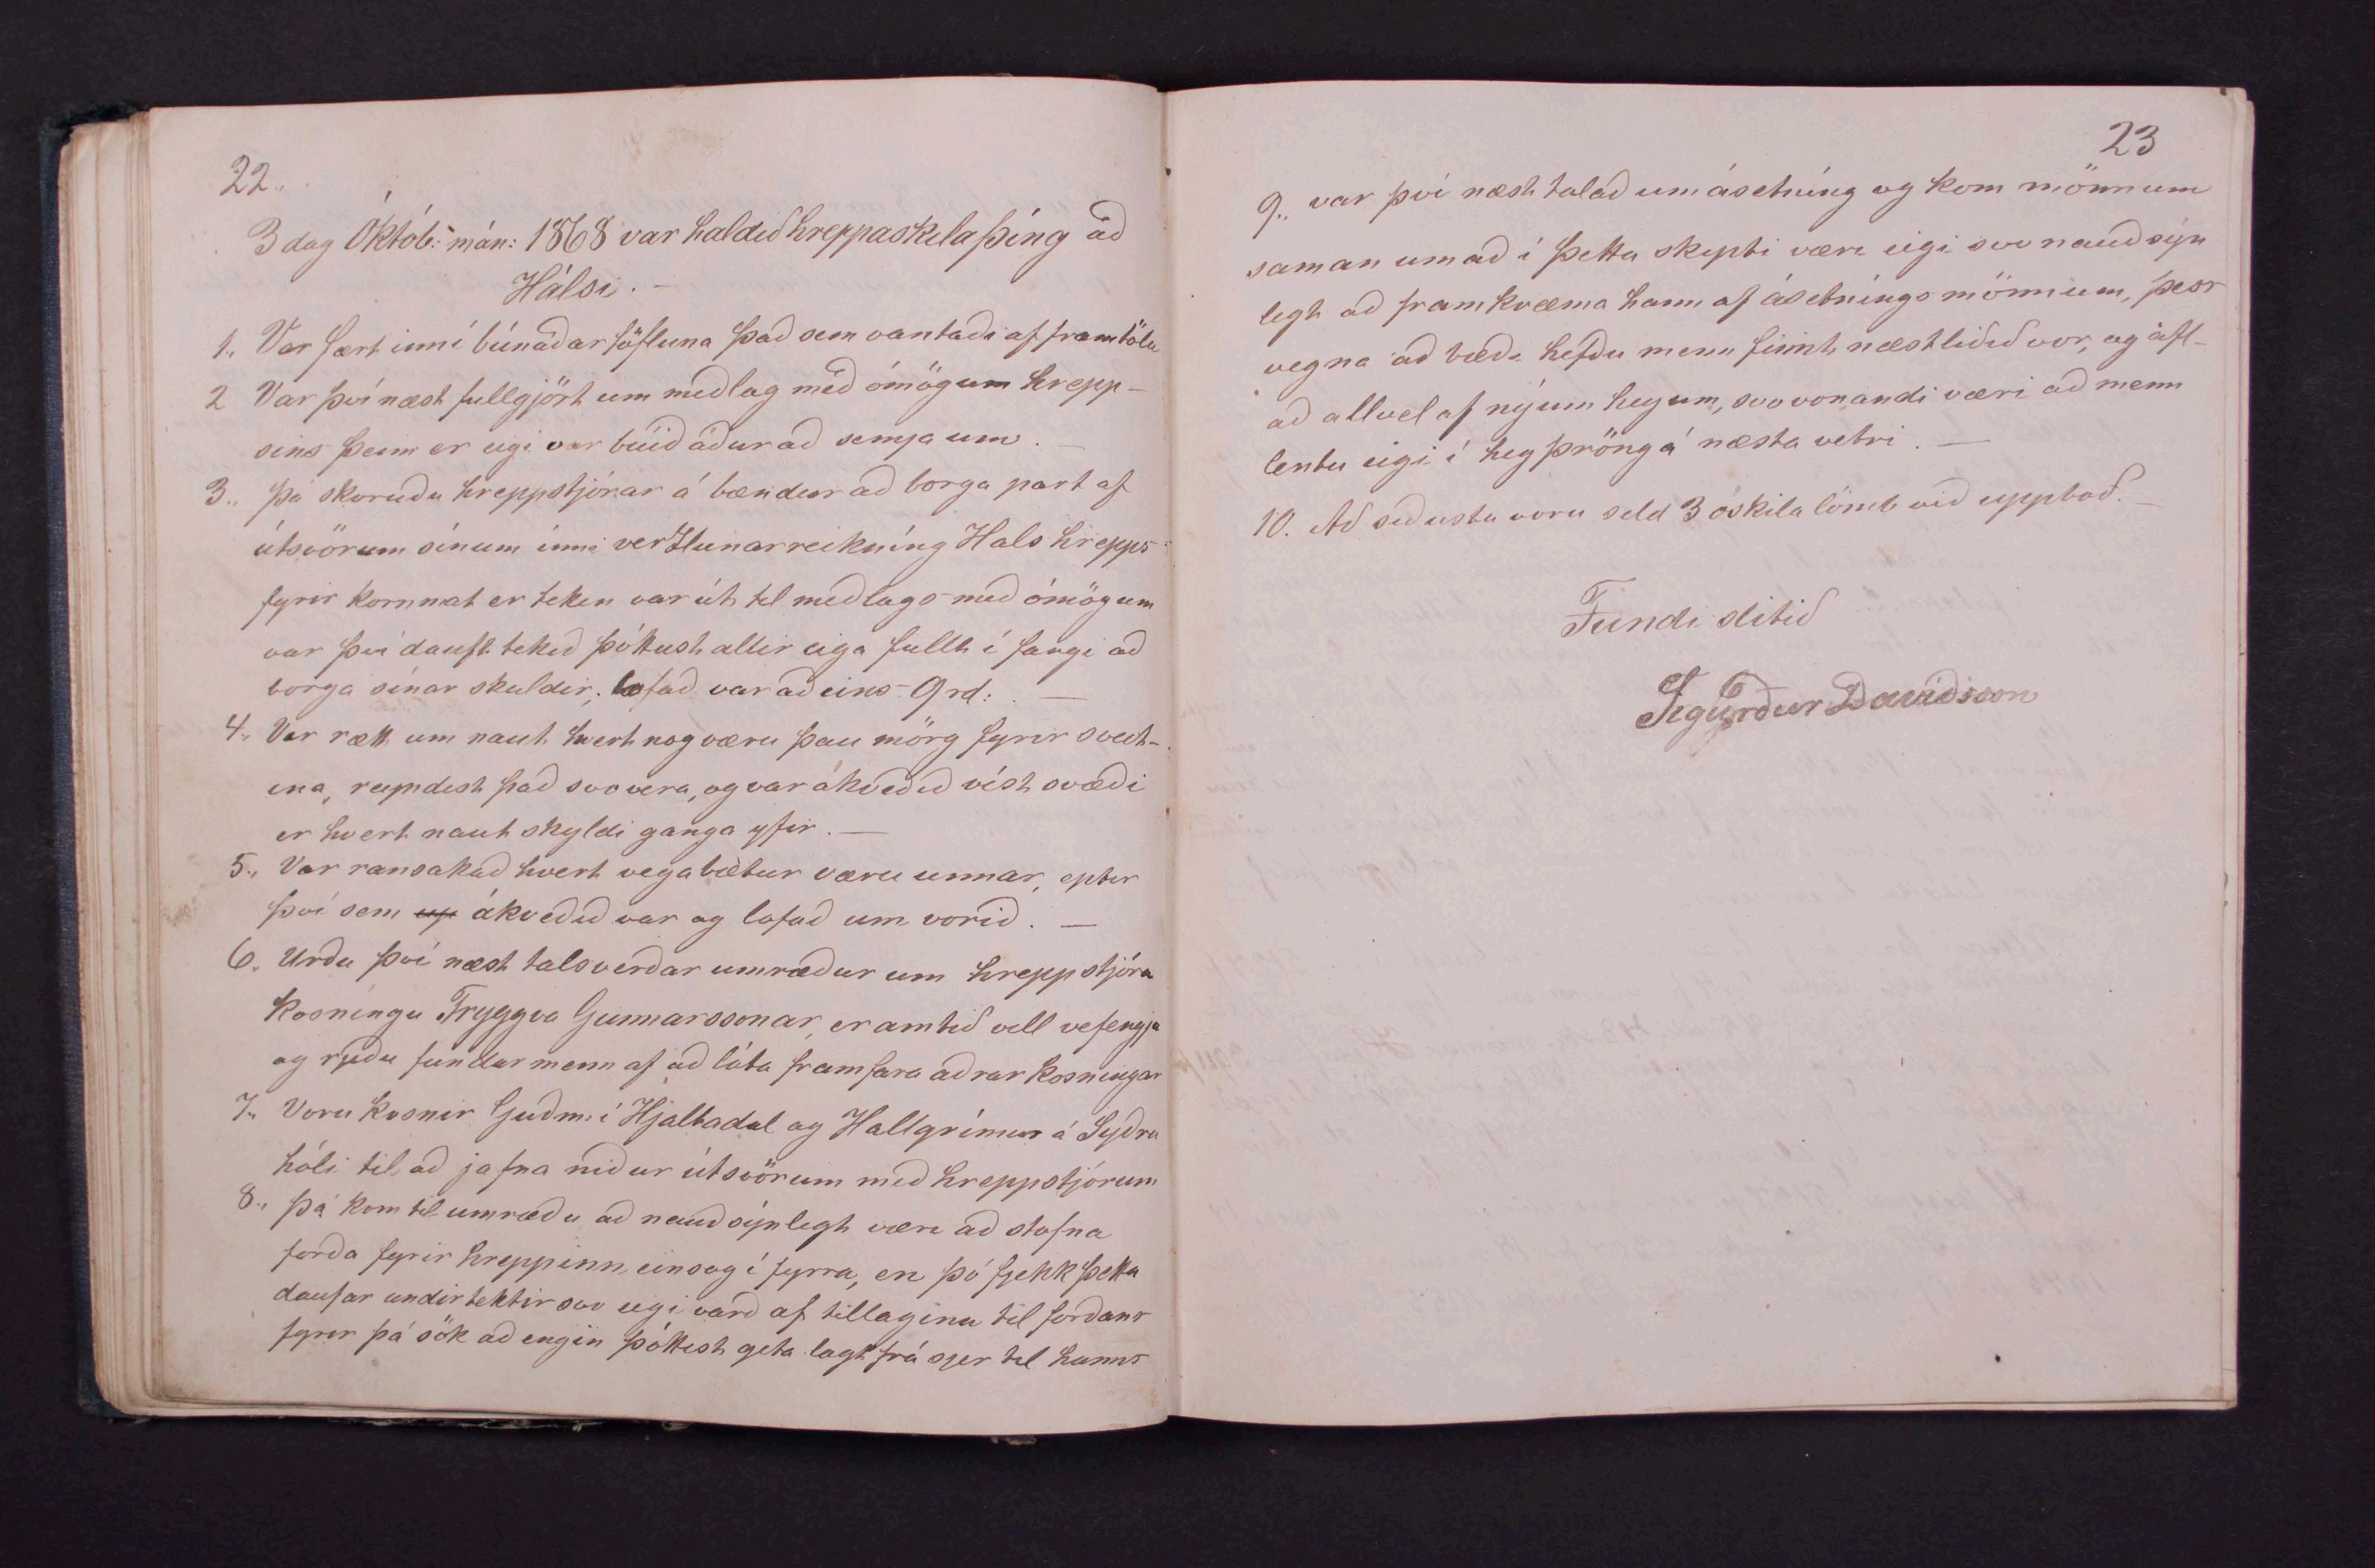 22.
3 dag Októb: mán: 1868 var haldið hreppaskilaþíng að
Hálsi. –
1., Var fært inní búnaðartöfluna það sem vantaði af framtölu
2 Var því næst fullgjört um meðlag með ómögum hrepp-
sins þeim er eigi var búið áður að semja um. –
3., þá skoruðu hreppstjórar á bændur að borga part af
útsvörum sínum inni verzlunarreikníng Háls hrepps
fyrir kornmat er tekin var út til meðlags með ómögum
var því dauft tekið þóttust allir eiga fullt í fangi að
borga sínar skuldir; lofað var að eins 9 rd: . –
4., Var rætt um naut hvert nog væru þau mörg fyrir sveit-
ina, reyndist það svo vera, og var ákveðið víst svæði
er hvert naut skyldi ganga yfir. –
5., Var ransakað hvert vegabætur væru unnar, eptir
því sem up ákveðið var og lofað um vorið. –
6. Urðu því næst talsverðar umræður um hreppstjóra
kosníngu Tryggva Gunnarssonar, er amtið vill vefengja
og rjeðu fundarmenn af að láta framfara aðrar kosníngar
7., Voru kosnir Guðm: í Hjaltadal og Hallgrímur á Syðra
hóli til að jafna niður útsvörum með hreppstjórum
8., þá kom til umræðu að nauðsýnlegt væri að stofna
forða fyrir hreppinn einsog í fyrra, en þó fjekk þetta
daufar undirtektir svo eigi varð af tillaginu til forðans
fyrir þá sök að engin þóttist geta lagt frá sjer til hanns
23
9., var því næst talað um ásetníng og kom mönnum
saman um að í þetta skipti væri eigi svo nauðsýn
legt að framkvæma hann af ásetníngsmönnum, þess
vegna að bæði hefðu menn firnt næstliðið vor, og afl-
að allvel af nýum heyum, svo vonandi væri að menn
lentu eigi í heyþröng á næsta vetri. –
10. Að síðustu voru seld 3 óskila lömb við uppboð. –
Fundi slitið
Sigurður Davíðsson